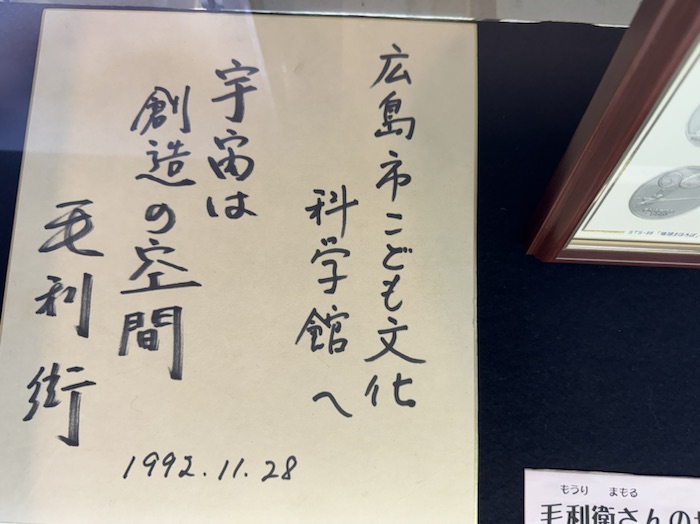 広島市こども文化
科学館へ
宇宙は
創造の空間
毛利衛
1992.11.28
もうり まもる
毛利衛さんの